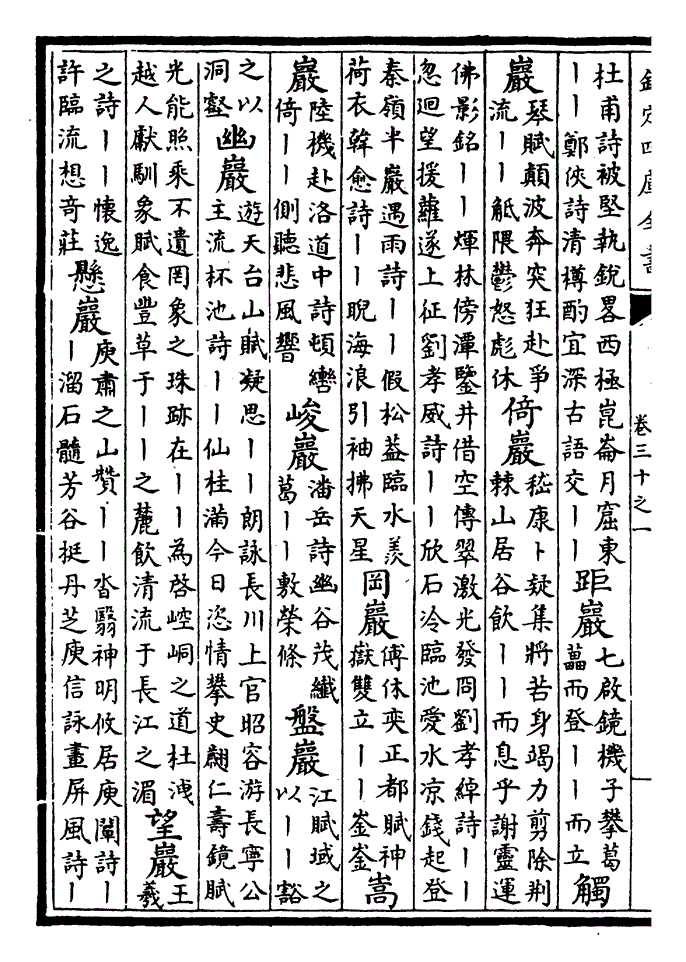 欽定四庫全書
卷三十之一
一
杜甫詩被堅執銳畧西極崑崙月窟東
丨丨鄭俠詩清樽酌宜深古語交丨丨
距巖
七啟鏡機子攀葛
藟而登丨丨而立
觸
巖
琴賦顛波奔突狂赴爭
流丨丨觝隈鬱怒彪休
倚巖
嵇康卜疑集將苦身竭力剪除荆
棘山居谷飲丨丨而息乎謝靈運
佛影銘丨丨輝林傍潭鑒井借空傳翠激光發冏劉孝綽詩丨丨
忽迴望援蘿遂上征劉孝威詩丨丨欣石冷臨池愛水凉錢起登
秦嶺半巖遇雨詩丨丨假松葢臨水羨
荷衣韓愈詩丨丨睨海浪引袖拂天星
岡巖
傅休奕正都賦神
嶽雙立丨丨崟崟
嵩
巖
陸機赴洛道中詩頓轡
倚丨丨側聽悲風響
峻巖
潘岳詩幽谷茂纖
葛丨丨敷榮條
盤巖
江賦域之
以丨丨豁
之以
洞壑
幽巖
遊天台山賦凝思丨丨朗詠長川上官昭容游長寧公
主流杯池詩丨丨仙桂滿今日恣情攀史翽仁壽鏡賦
光能照乘不遺罔象之珠跡在丨丨為啓崆峒之道杜洩
越人獻馴象賦食豐草于丨丨之麓飲清流于長江之湄
望巖
王
羲
之詩丨丨懷逸
許臨流想奇莊
懸巖
庾肅之山贊丨丨沓翳神明攸居庾闡詩丨
丨溜石髓芳谷挺丹芝庾信詠畫屏風詩丨